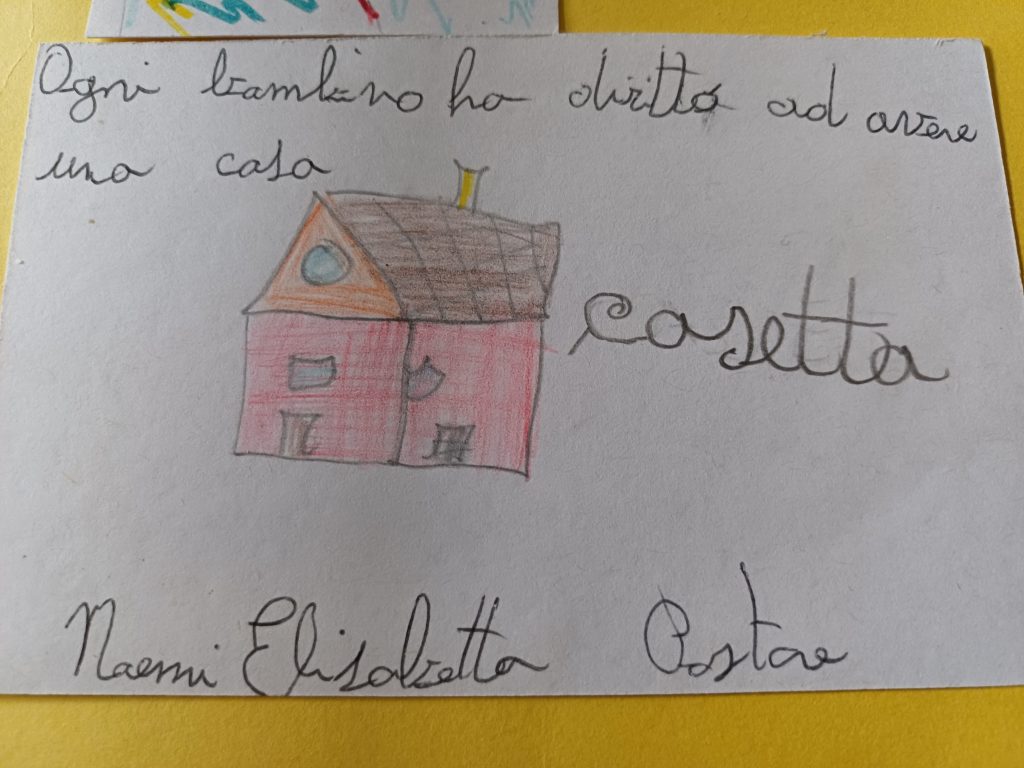 Ogni bambino ha diritto ad avere
una casa
casetta
Naemi Elisabetta Costae